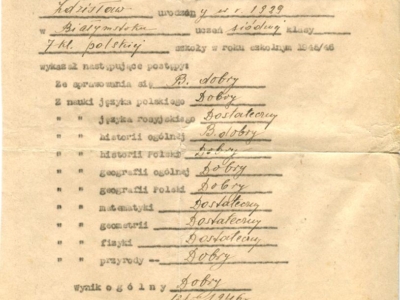 Zdzisław urodzony w r 1929
w Białymstoku uczeń siódmej klasy
7 kl. polskiej szkoły w roku szkolnym 1945/46
wykazał następujące postępy:
Ze sprawowania się B. dobry
Z nauki języka polskiego Dobry
" " języka rosyjskiego Dostateczny
" " historii ogólnej B. dobry
" " historii Polski Dobry
" " geografii ogólnej Dobry
" " geografii Polski Dobry
" " matematyki Dostateczny
" " geometrii Dostateczny
" " fizyki Dostateczny
" " przyrody -- Dobry
Wynik ogólny Dobry